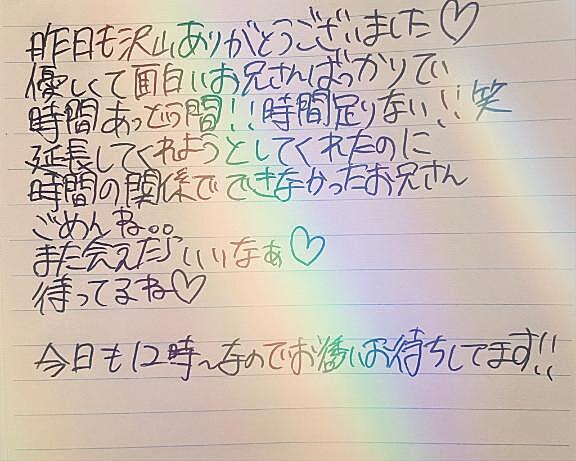 昨日も沢山ありがとうございました♡
優しくて面白いお兄さんばっかりでい
時間あっとゆう間!!時間足りない!!笑
延長してくれようとしてくれたのに
時間の関係でできなかったお兄さん
ごめんね。。
また会えたらいいなぁ♡
待ってるね♡
今日も12時〜なのでお誘いお待ちしてます!!